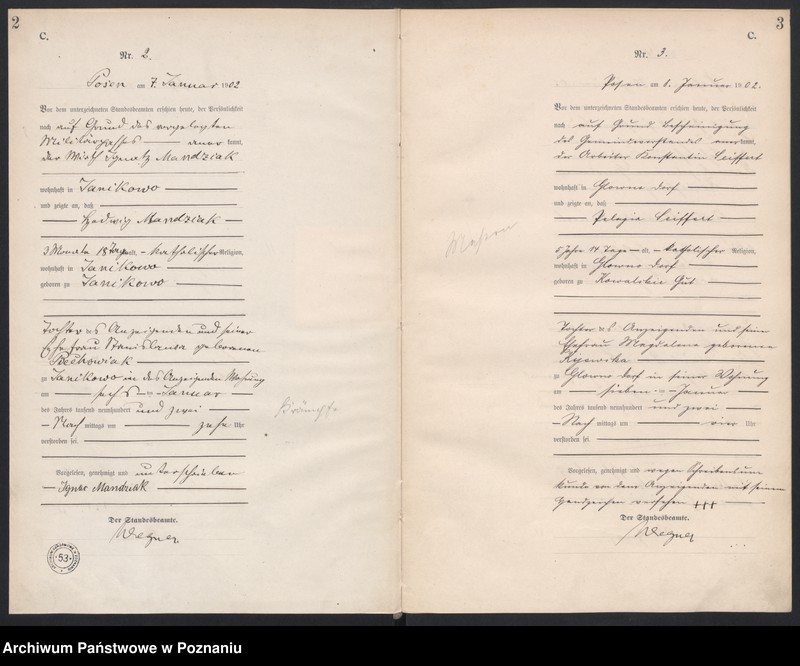 2
C.
Nr. 2.
Posen am 7. Januar 1902
Vor dem unterzeichneten Standesbeamten erschien heute, der Persönlichkeit
nach auf Grund des vorgelegten
Militärpasses anerkannt,
der Wirth Ignatz Mandziak
wohnhaft in Janikowo
und zeigte an, daß
Hedwig Mandziak
3 Monate 18 Tage alt, katholischer Religion,
wohnhaft in Janikowo
geboren zu Janikowo
Tochter des Anzeigenden und seiner
Ehefrau Stanislawa geborenen
zu Janikowo in des Anzeigenden Wohnung
am sechs ten Januar
des Jahres tausend neunhundert und zwei
Nach mittags um zehn Uhr
verstorben sei.
Vorgelesen, genehmigt und unterschrieben
Ignac Mandziak
Der Standesbeamte.
Wegner
Krämpfe
53
3
C.
Nr. 3.
Posen am 8. Januar 1902.
Vor dem unterzeichneten Standesbeamten erschien heute, der Persönlichkeit
nach auf Grund Bescheinigung
des Gemeindevorstandes anerkannt,
der Arbeiter Konstantin Seiffert
wohnhaft in Glowno Dorf
und zeigte an, daß
Pelagia Seiffert
5 Jahre 14 Tage alt, katholischer Religion,
wohnhaft in Glowno Dorf
geboren zu Gut
Tochter des Anzeigenden und seiner
Ehefrau Magdalena geborenen
zu Glowno Dorf in seiner Wohnung
am sieben ten Januar
des Jahres tausend neunhundert und zwei
Nach mittags um vier Uhr
verstorben sei.
Vorgelesen, genehmigt und wegen Schreibensun
kunde von dem Anzeigenden mit seinem
Handzeichen versehen +++
Der Standesbeamte.
Wegner
Masern
Archiwum Państwowe w Poznaniu